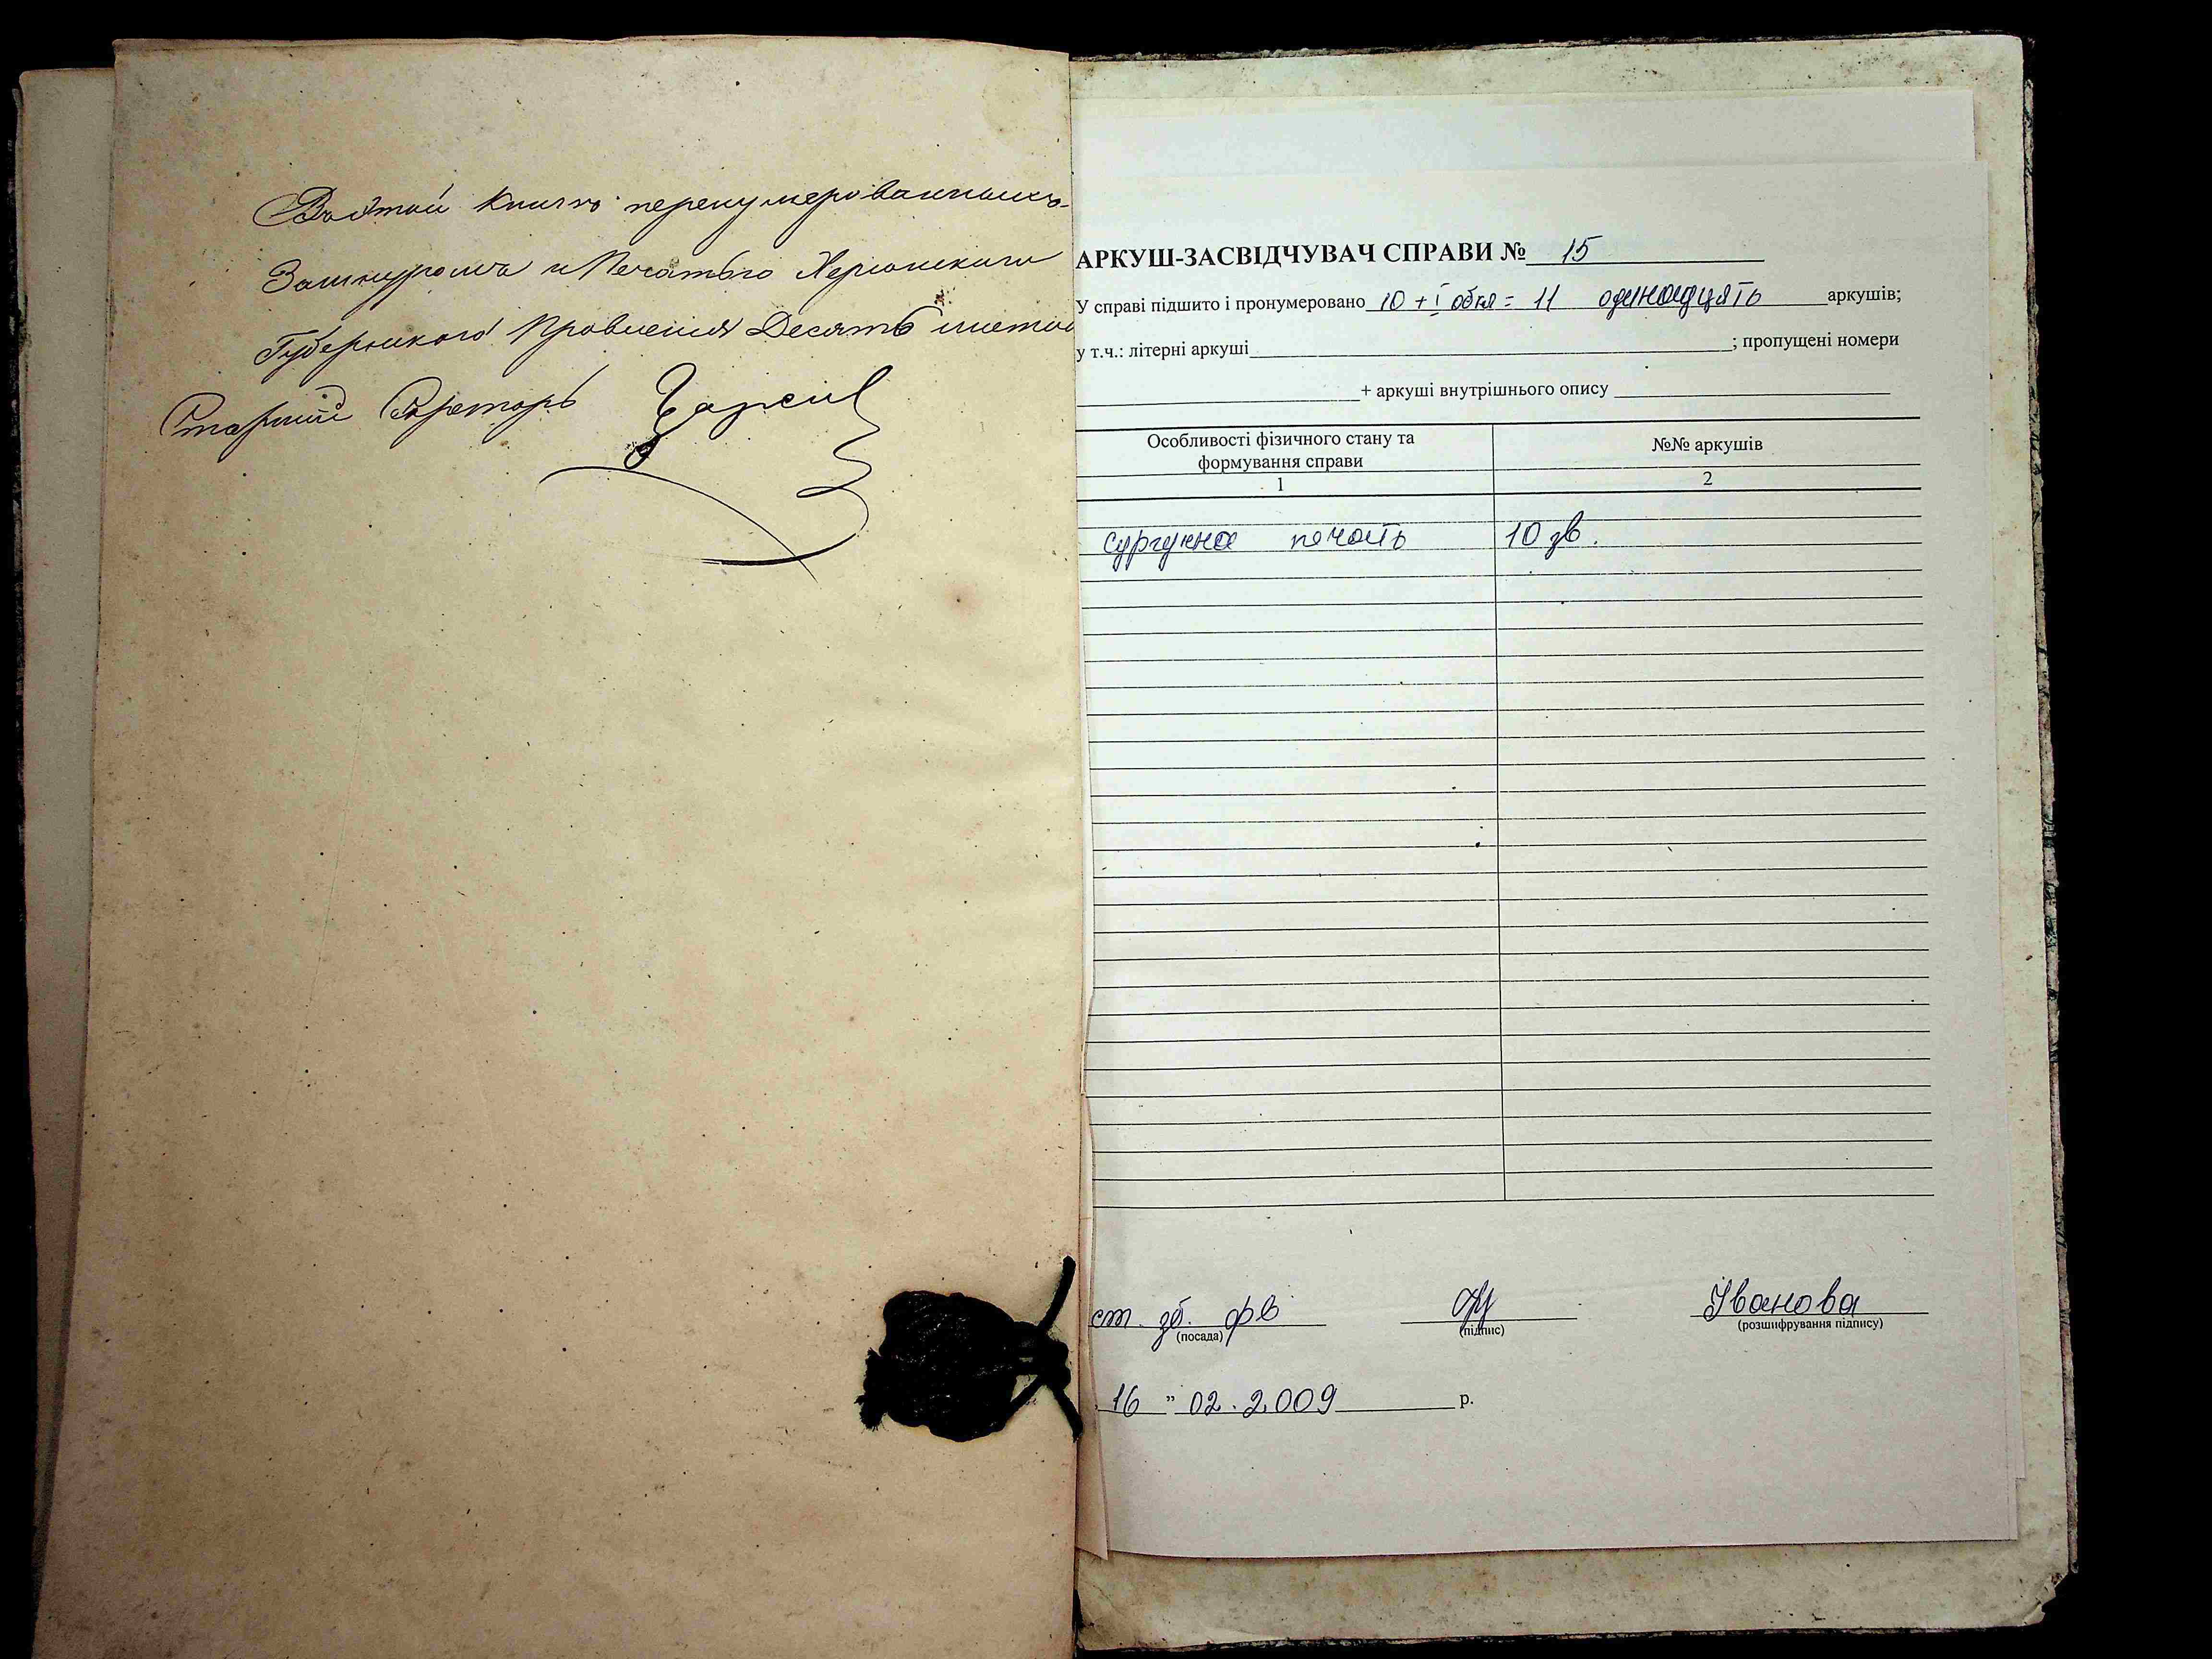 Въ этой книгѣ перенумерованныхъ
Зашнурован и Печатью Херсонскаго
Губернскаго Правления Десять листов
Старший Секретарь
АРКУШ-ЗАСВІДЧУВАЧ СПРАВИ № 15
У справі підшито і пронумеровано 10 + 1 обкл = 11 одинадцять аркушів;
у т.ч.: літерні аркуші ; пропущені номери
+ аркуші внутрішнього опису
Особливості фізичного стану та формування справи
№№ аркушів
1
2
сургучна печать 10 зв.
ст. зб. фв
Іванова
(посада)
(підпис)
(розшифрування підпису)
16 " 02. 2009 р.